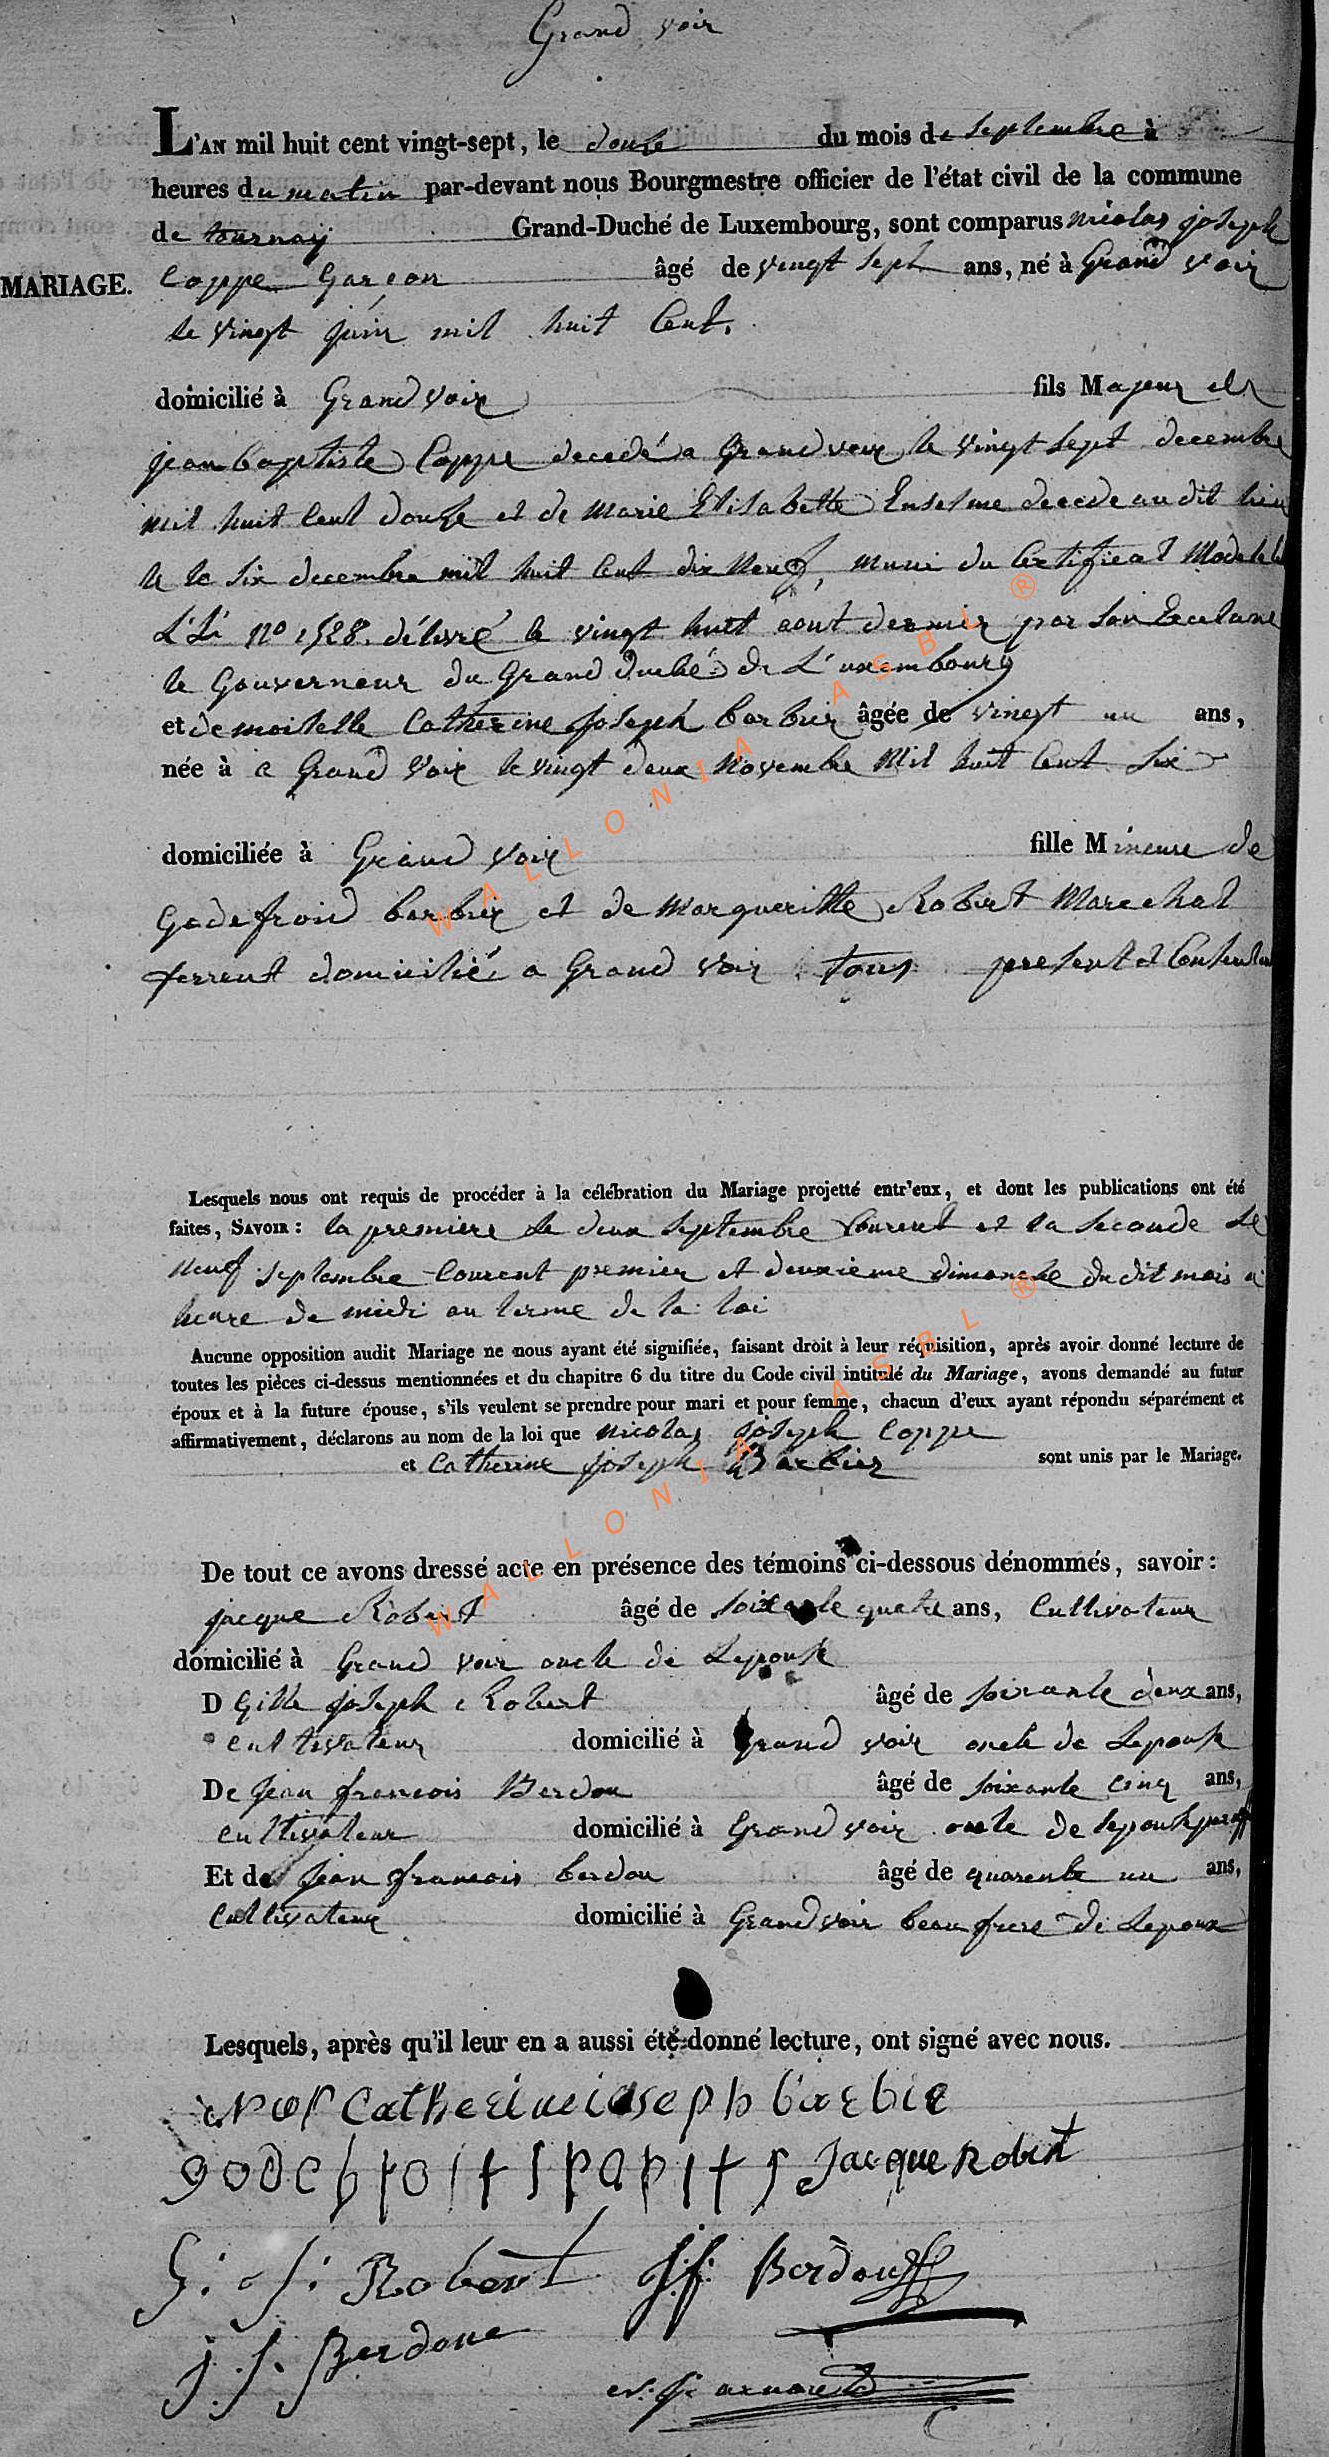 Grand voir
L'AN mil huit cent vingt-sept, le douze du mois de septembre à
heures du matin par-devant nous Bourgmestre officier de l'état civil de la commune
de tournaÿ Grand-Duché de Luxembourg, sont comparus nicolas joseph
MARIAGE. Coppe Garçon âgé de vingt sept ans, né à Grand voir
le vingt juin mil huit Cent.
domicilié à Grand Voir fils Majeur de
jean baptiste Coppe decedé a Grand voir le vingt sept decembre
mil huit Cent douze et de Marie Elisabette Enselme decede audit lieu
le le six decembre mil huit Cent dix neuf, muni du Certificat Modele
L. Li no 1528. délivré le vingt huit aout dernier par son Excelance
le Gouverneur du Grand duché de L'uxembourg
et demoiselle Catherine joseph barbier âgée de vingt un ans,
née à a Grand Voir le vingt deux Novembre Mil huit Cent six
domiciliée à Grand voir fille Mineure de
Godefroid barbier et de Margueritte Robert Marechal
ferrent domicilié a Grand Voir tous present et Consentent
Lesquels nous ont requis de procéder à la célébration du Mariage projetté entr'eux, et dont les publications ont été
faites, SAVOIR : la premiere le deux septembre Courent et la seconde le
neuf septembre Courent premier et deuxieme dimanche dudit mois a
heure de midi au terme de la loi
Aucune opposition audit Mariage ne nous ayant été signifiée, faisant droit à leur réquisition, après avoir donné lecture de
toutes les pièces ci-dessus mentionnées et du chapitre 6 du titre du Code civil intitulé du Mariage, avons demandé au futur
époux et à la future épouse, s'ils veulent se prendre pour mari et pour femme, chacun d'eux ayant répondu séparément et
affirmativement, déclarons au nom de la loi que nicolas joseph Coppe
et Catherine joseph Barbier sont unis par le Mariage.
De tout ce avons dressé acte en présence des témoins ci-dessous dénommés, savoir :
jacque Robert âgé de soixante quatre ans, Cultivateur
domicilié à Grand voir oncle de Lepouse
D Gille joseph Robert âgé de soixante deux ans,
cultivateur domicilié à Grand voir oncle de Lepouse
De jean francois Berdou âgé de soixante cinq ans,
cultivateur domicilié à Grand voir oncle de lepouse
Et de jean francois berdou âgé de quarente un ans,
Cultivateur domicilié à Grand voir beau frere de Lepoux
Lesquels, après qu'il leur en a aussi été donné lecture, ont signé avec nous.
Catherine ioseph barbie
Jacque Robert
G : J : Robert J. f. Berdou
j. f. Berdoue
WALLONIA ASBL ®
WALLONIA ASBL ®